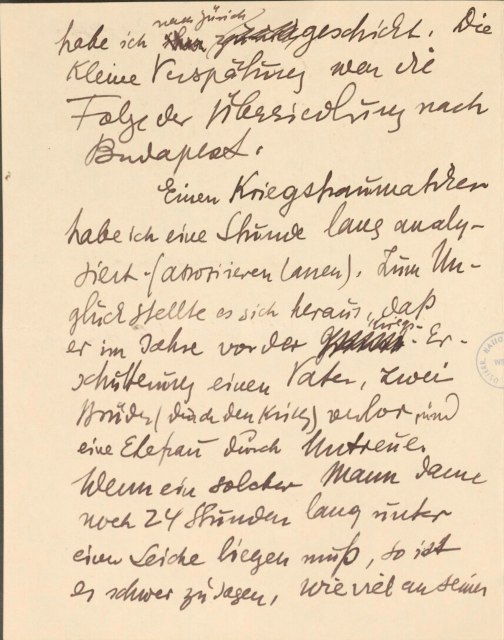 nach Zürich
habe ich geschickt. Die
kleine Verspätung war die
Folge der Übersiedlung nach
Budapest.
Einen Kriegstraumatiker
habe ich eine Stunde lang analy-
siert - (assoziieren lassen). Zum Un-
glück stellte es sich heraus, daß
er im Jahre vor der Kriegs-Er-
schütterung einen Vater, zwei
Brüder (durch den Krieg) verlor und
eine Ehefrau durch Untreue.
Wenn ein solcher Mann dann
noch 24 Stunden lang unter
einer Leiche liegen muß, so ist
es schwer zu sagen, wie viel an seiner